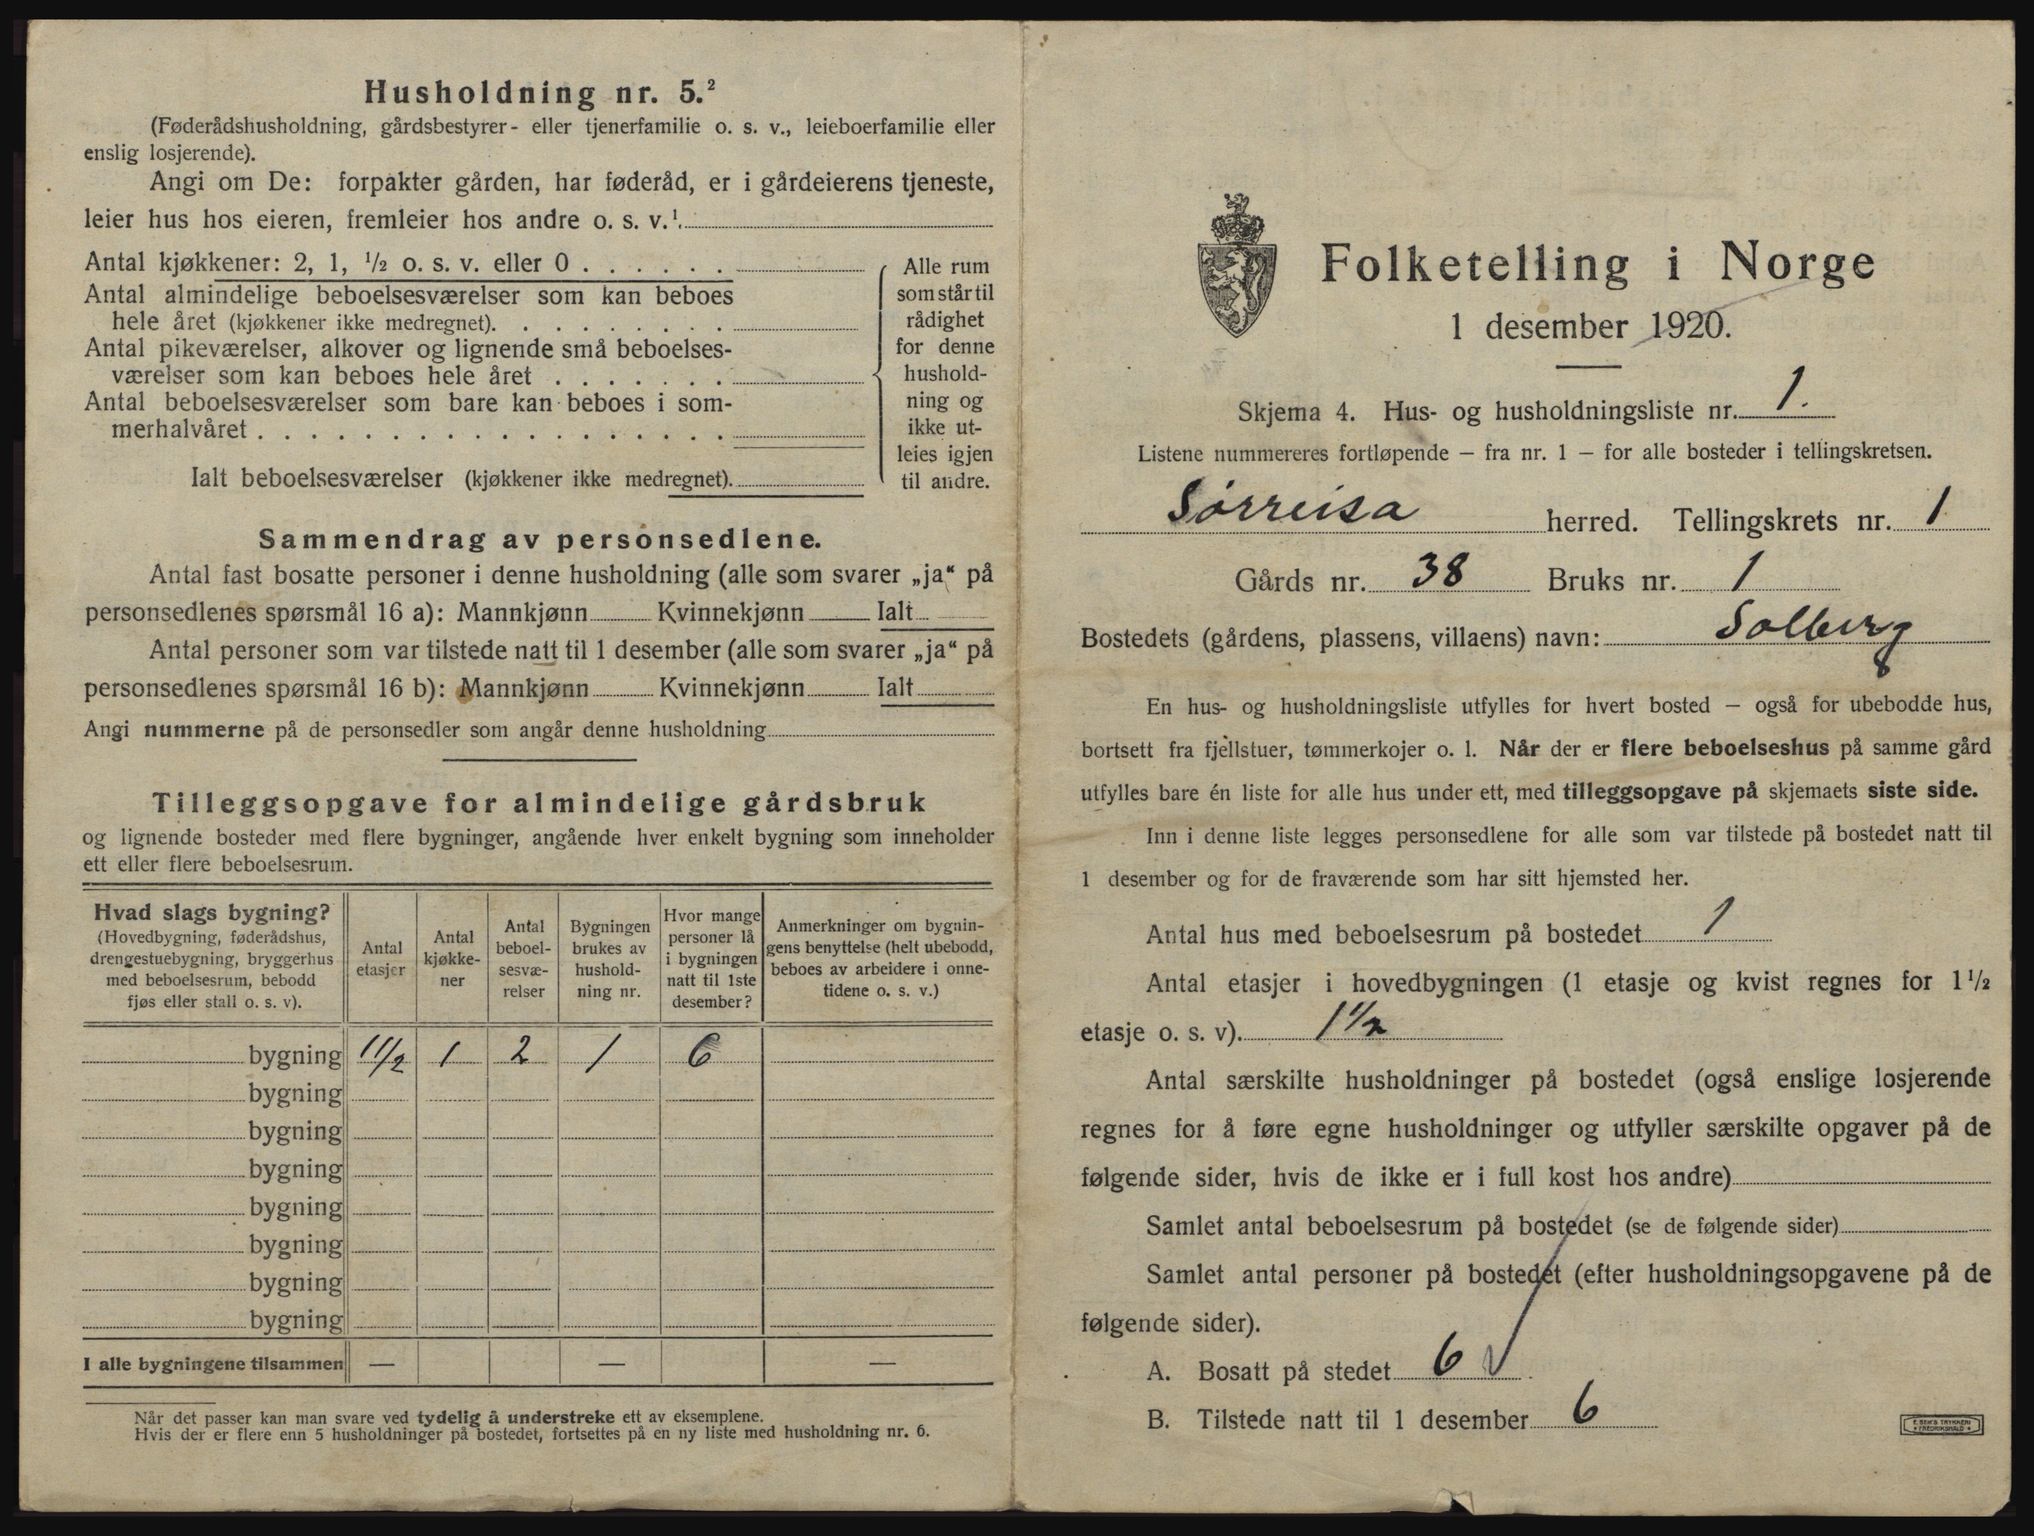 Husholdning nr. 5.²
(Føderådshusholdning, gårdsbestyrer- eller tjenerfamilie o. s. v., leieboerfamilie eller
enslig losjerende).
Angi om De: forpakter gården, har føderåd, er i gårdeierens tjeneste,
leier hus hos eieren, fremleier hos andre o. s. v.¹
Antal kjøkkener: 2, 1, ½ o. s. v. eller 0
Antal almindelige beboelsesværelser som kan beboes
hele året (kjøkkener ikke medregnet).
Antal pikeværelser, alkover og lignende små beboelses-
værelser som kan beboes hele året
Antal beboelsesværelser som bare kan beboes i som-
merhalvåret
Ialt beboelsesværelser (kjøkkener ikke medregnet).
Alle rum
som står til
rådighet
for denne
hushold-
ning og
ikke ut-
leies igjen
til andre.
Sammendrag av personsedlene.
Antal fast bosatte personer i denne husholdning (alle som svarer „ja“ på
personsedlenes spørsmål 16 a): Mannkjønn Kvinnekjønn Ialt
Antal personer som var tilstede natt til 1 desember (alle som svarer „ja“ på
personsedlenes spørsmål 16 b): Mannkjønn Kvinnekjønn Ialt
Angi nummerne på de personsedler som angår denne husholdning
Tilleggsopgave for almindelige gårdsbruk
og lignende bosteder med flere bygninger, angående hver enkelt bygning som inneholder
ett eller flere beboelsesrum.
Hvad slags bygning?
(Hovedbygning, føderådshus,
drengestuebygning, bryggerhus
med beboelsesrum, bebodd
fjøs eller stall o. s. v).
Antal
etasjer
Antal
kjøkke-
ner
Antal
beboel-
sesvæ-
relser
Bygningen
brukes av
hushold-
ning nr.
Hvor mange
personer lå
i bygningen
natt til 1ste
desember?
Anmerkninger om bygnin-
gens benyttelse (helt ubebodd,
beboes av arbeidere i onne-
tidene o. s. v.)
bygning 1½ 1 2 1 6
bygning
bygning
bygning
bygning
bygning
bygning
bygning
I alle bygningene tilsammen — — —
Når det passer kan man svare ved tydelig å understreke ett av eksemplene.
Hvis der er flere enn 5 husholdninger på bostedet, fortsettes på en ny liste med husholdning nr. 6.
Folketelling i Norge
1 desember 1920.
Skjema 4. Hus- og husholdningsliste nr. 1.
Listene nummereres fortløpende – fra nr. 1 – for alle bosteder i tellingskretsen.
Sörreisa herred. Tellingskrets nr. 1
Gårds nr. 38 Bruks nr. 1
Bostedets (gårdens, plassens, villaens) navn: Solberg
8
En hus- og husholdningsliste utfylles for hvert bosted – også for ubebodde hus,
bortsett fra fjellstuer, tømmerkojer o. l. Når der er flere beboelseshus på samme gård
utfylles bare én liste for alle hus under ett, med tilleggsopgave på skjemaets siste side.
Inn i denne liste legges personsedlene for alle som var tilstede på bostedet natt til
1 desember og for de fraværende som har sitt hjemsted her.
Antal hus med beboelsesrum på bostedet 1
Antal etasjer i hovedbygningen (1 etasje og kvist regnes for 1½
etasje o. s. v). 1½
Antal særskilte husholdninger på bostedet (også enslige losjerende
regnes for å føre egne husholdninger og utfyller særskilte opgaver på de
følgende sider, hvis de ikke er i full kost hos andre)
Samlet antal beboelsesrum på bostedet (se de følgende sider)
Samlet antal personer på bostedet (efter husholdningsopgavene på de
følgende sider).
A. Bosatt på stedet 6
B. Tilstede natt til 1 desember 6